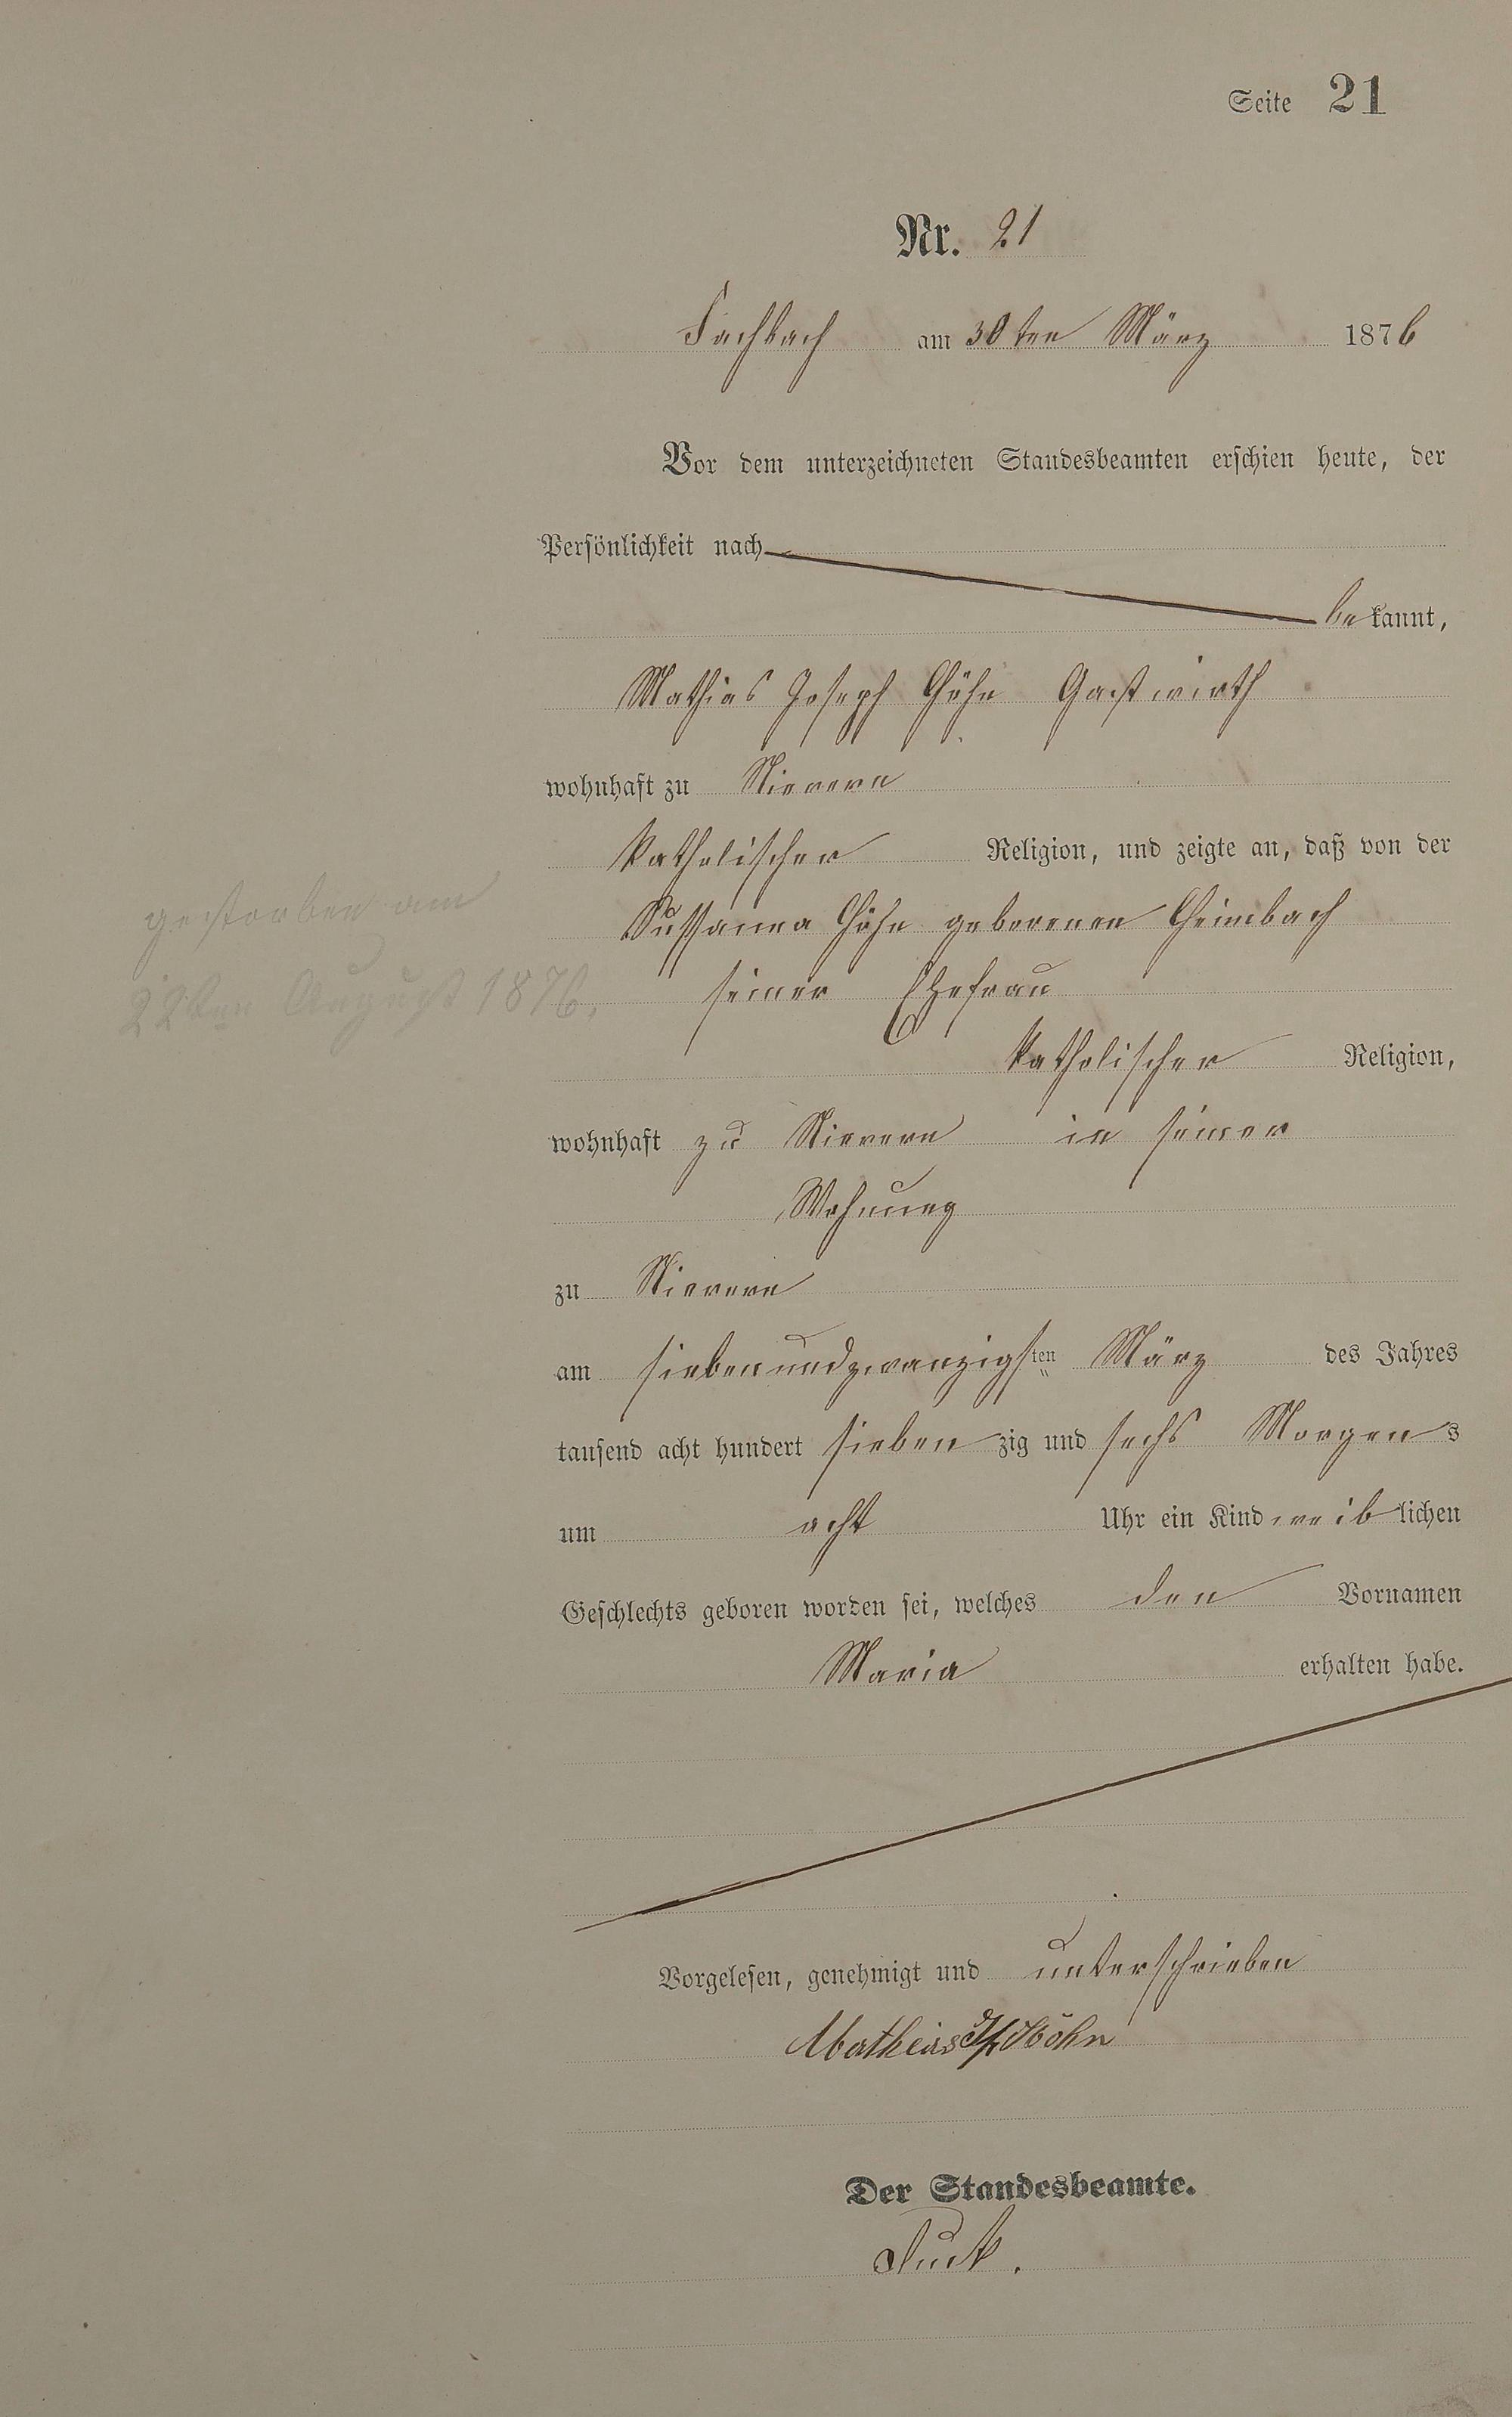 Seite 21
Nr. 21
Fachbach am 30ten März 1876
Vor dem unterzeichneten Standesbeamten erschien heute, der
Persönlichkeit nach
bekannt,
Mathias Joseph Höhn Gastwirth
wohnhaft zu Nievern
katholischer Religion, und zeigte an, daß von der
gestorben am
Sussanna Höhn geborenen Heimbach
22ten August 1876.
seiner Ehefrau
katholischer Religion,
wohnhaft zu Nievern in seiner
Wohnung
zu Nievern
am siebenundzwanzigsten März des Jahres
tausend acht hundert siebenzig und sechs Morgens
um acht Uhr ein Kind weiblichen
Geschlechts geboren worden sei, welches den Vornamen
Maria erhalten habe.
Vorgelesen, genehmigt und unterschrieben
Mathias Höhn
Der Standesbeamte.